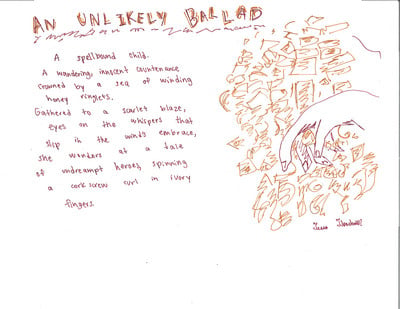 AN UNLIKELY BALLAD
A spellbound child.
A wandering, innocent countenance
crowned by a sea of winding
honey ringlets.
Gathered to a scarlet blaze,
eyes on the whispers that
slip in the winds embrace,
she wonders at a tale
of undreampt heroes, spinning
a corkscrew curl in ivory
fingers.